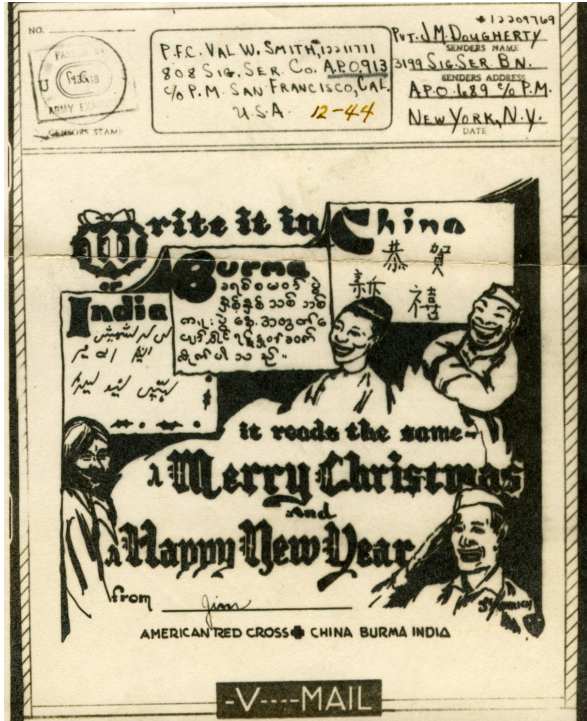 NO.
CENSORS STAMP
P.F.C. VAL W. SMITH, 12211711
808 SIG. SER. CO. A.P.O. 913
c/o P.M. SAN FRANCISCO, CAL.
U.S.A. 12-44
#12209769
PVT. J.M. DOUGHERTY
SENDERS NAME
3199 SIG. SER. BN.
SENDERS ADDRESS
A.P.O. 689 c/o P.M.
NEW YORK, N.Y.
DATE
Write it in China
恭賀
新禧
Burma
or
India
it reads the same-
A Merry Christmas
and
A Happy New Year
from Jim
AMERICAN RED CROSS CHINA BURMA INDIA
-V----MAIL